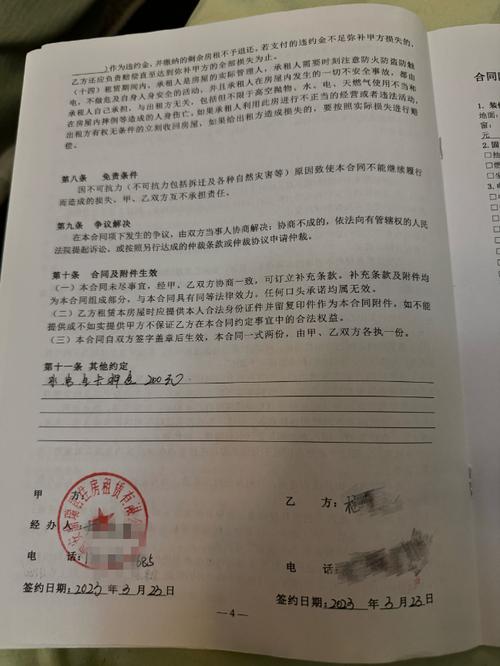 )作为违约金，并缴纳的剩余房租不予退还，若支付的违约金不足弥补甲方损失的，
乙方还应负责赔偿直至达到弥补甲方的全部损失为止。
(十四)租赁期间内，承租人是房屋的实际管理人，承租人需要时刻注意防火防盗防触
电，不做危及自身人身安全的活动，并且承租人在房屋内发生的一切不安全事故，都由
承租人自己承担，与出租方无关，包括但不限于高空抛物、水、电、天燃气使用不当和
在房屋内摔倒等造成的人身伤亡。如果承租人利用此房进行不正当的经营或者违法活动，
出租方有权无条件的立刻收回房屋，如果给出租方造成损失的，要按照实际损失进行赔
偿。
第八条 免责条件
因不可抗力（不可抗力包括拆迁及各种自然灾害等）原因致使本合同不能继续履行
而造成的损失，甲、乙双方互不承担责任。
第九条 争议解决
在本合同项下发生的争议，由双方当事人协商解决；协商不成的，依法向有管辖权的人民
法院提起诉讼，或按照另行达成的仲裁条款或仲裁协议申请仲裁。
第十条 合同及附件生效
(一)本合同未尽事宜，经甲、乙双方协商一致，可订立补充条款。补充条款及附件均
为本合同组成部分，与本合同具有同等法律效力，任何口头承诺均属无效。
(二)乙方租赁本房屋时应提供本人合法身份证件并留复印件作为本合同附件，如不能
提供或不如实提供甲方不保证乙方在本合同约定事宜中的合法权益。
(三)本合同自双方签字盖章后生效，本合同一式两份，由甲、乙双方各执一份。
第十一条 其他约定
卡押金 200元
甲 方：
住房租赁有
经办人：
电 话： 685
签约日期：2023 年 3 月 23 日
乙 方：杨
电 话：
签约日期：2023 年 3 月 23 日
—4—
合同
1. 装
地面：
元
2. 固